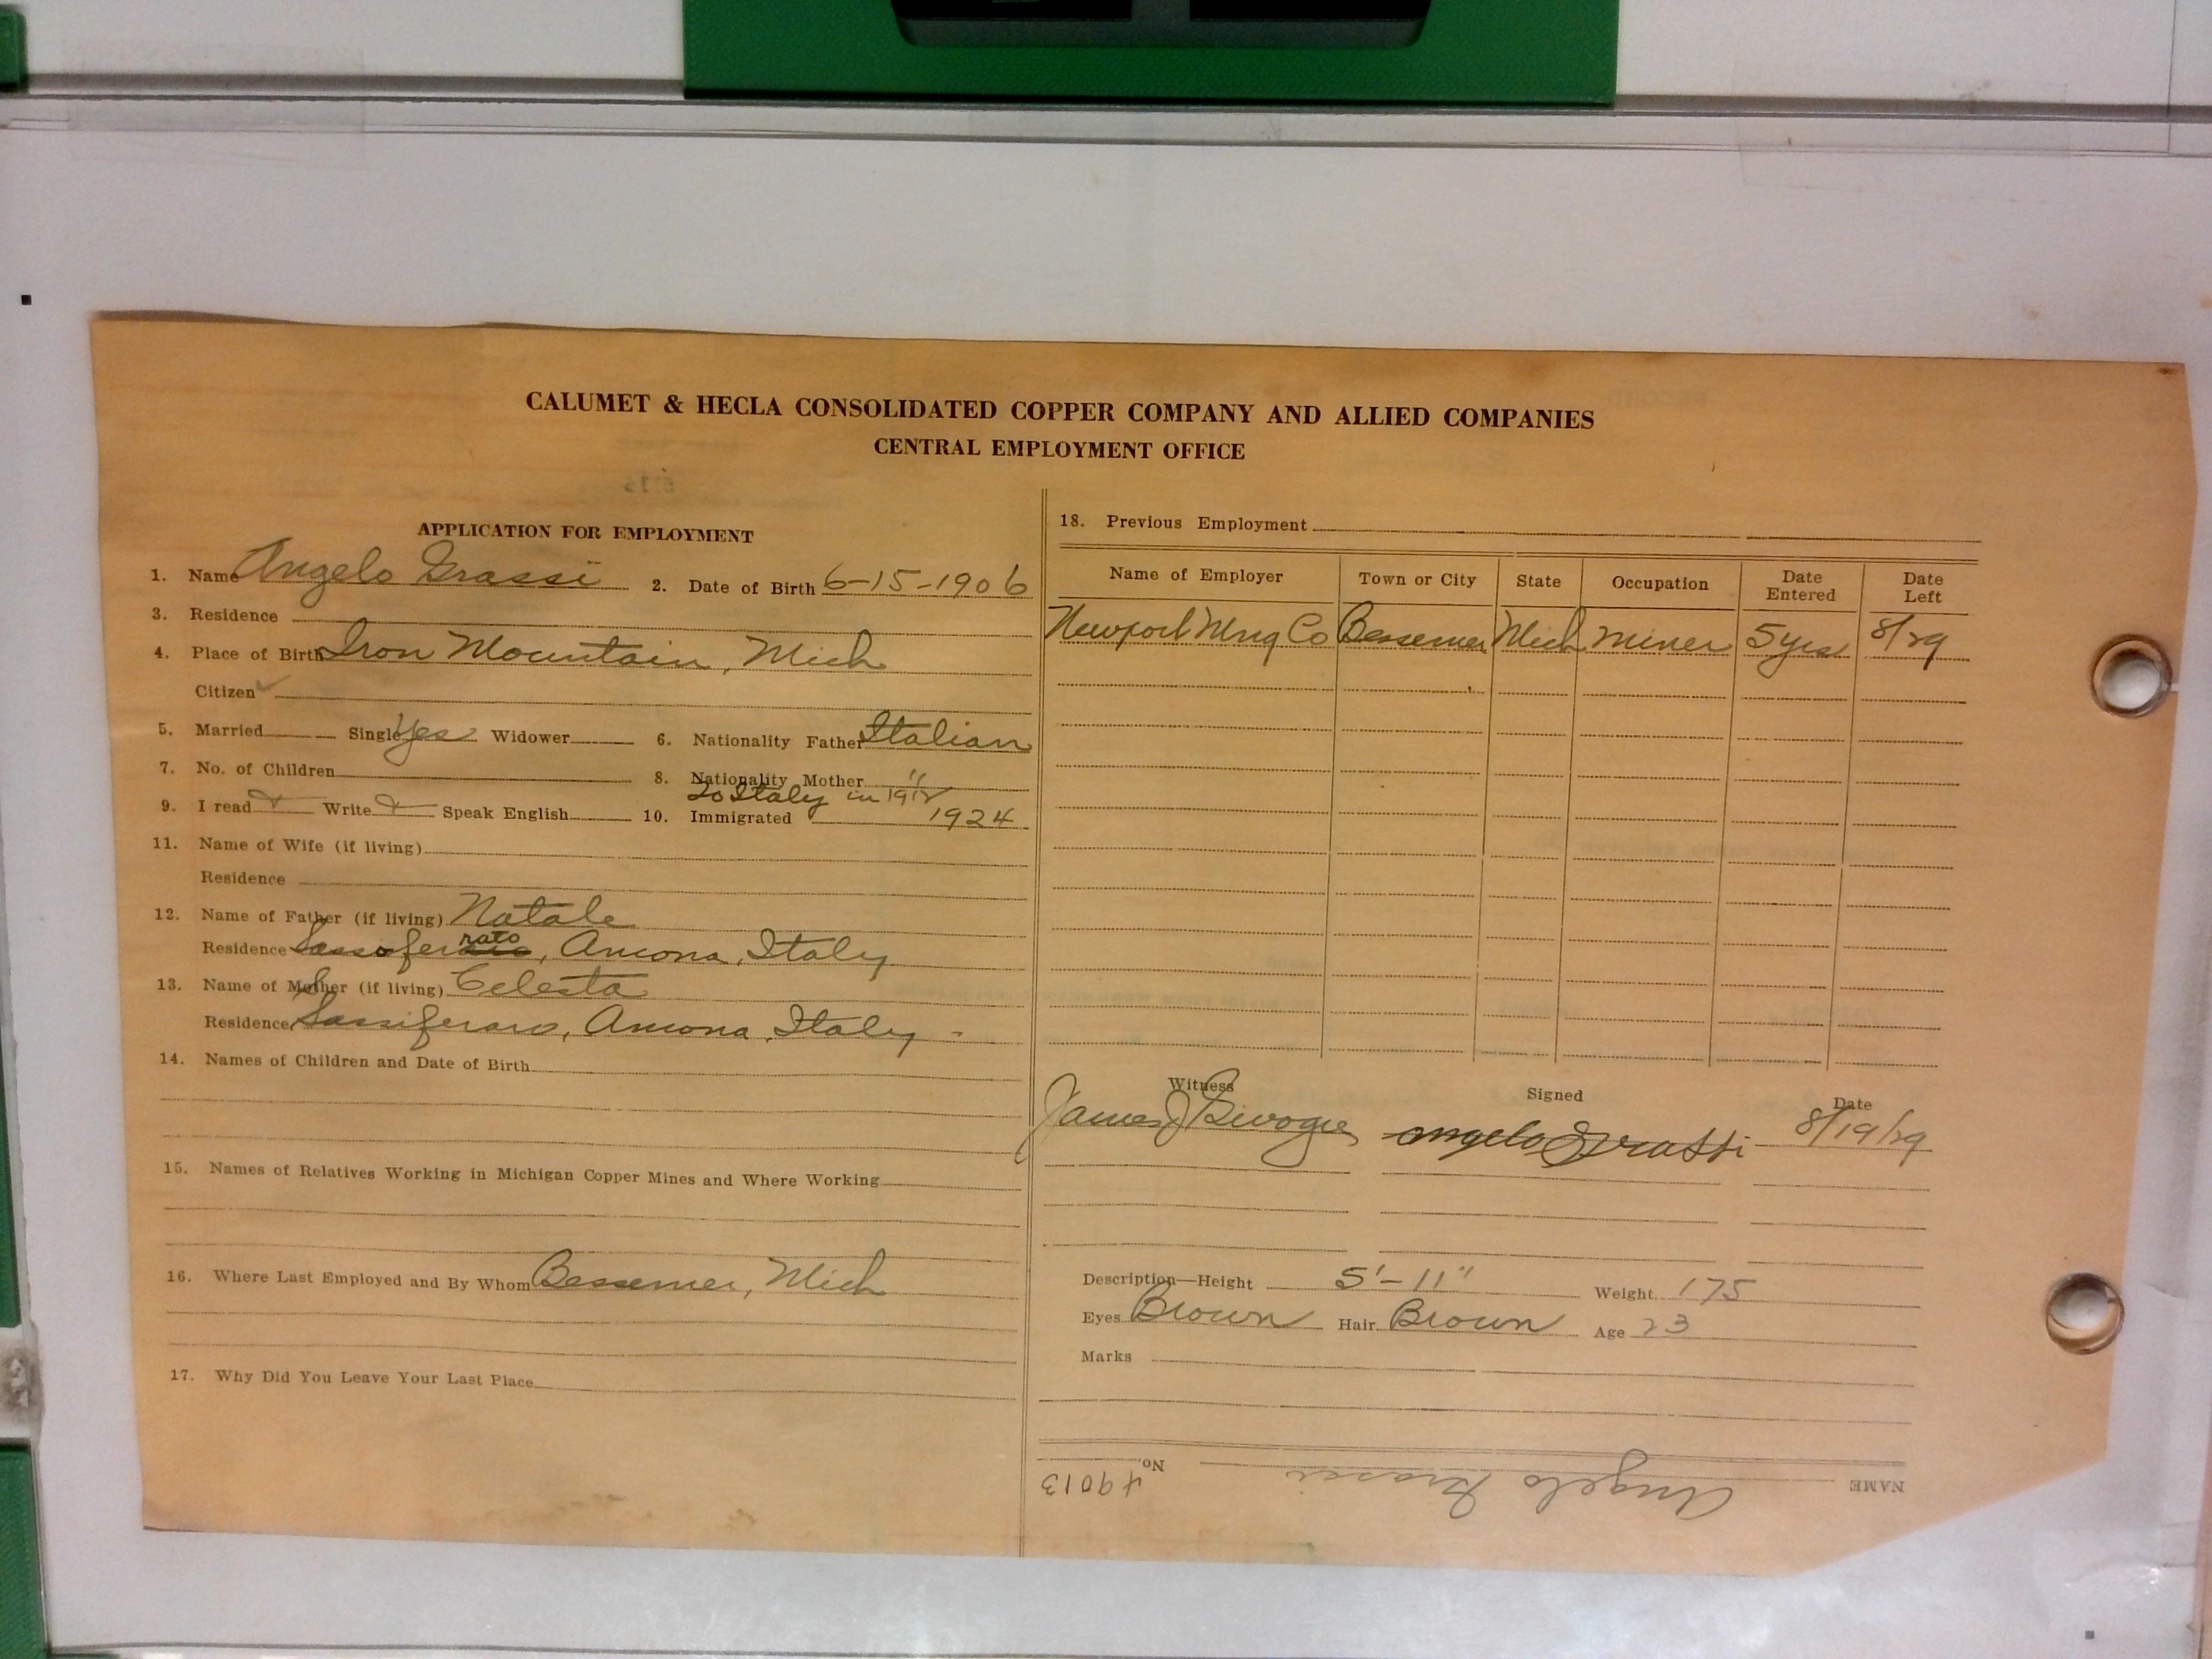 CALUMET & HECLA CONSOLIDATED COPPER COMPANY AND ALLIED COMPANIES
CENTRAL EMPLOYMENT OFFICE
APPLICATION FOR EMPLOYMENT
1. Name Angelo Grassi 2. Date of Birth 6-15-1906
3. Residence
4. Place of Birth Iron Mountain, Mich
Citizen ✓
5. Married Single Yes Widower 6. Nationality Father Italian
7. No. of Children 8. Nationality Mother "
To Italy in
9. I read Write Speak English 10. Immigrated 1924
11. Name of Wife (if living)
Residence
12. Name of Father (if living) Natale
rato
Residence Sassofer, Ancona, Italy
13. Name of Mother (if living) Celesta
Residence Sassiferaro, Ancona, Italy -
14. Names of Children and Date of Birth
15. Names of Relatives Working in Michigan Copper Mines and Where Working
16. Where Last Employed and By Whom Bessemer, Mich
17. Why Did You Leave Your Last Place
18. Previous Employment
Name of Employer Town or City State Occupation Date Entered Date Left
Newport Mng Co Bessemer Mich Miner 5 yrs 8/29
Witness Signed Date
James J Angelo Grassi 8/19/29
Description—Height 5'-11" Weight 175
Eyes Brown Hair Brown Age 23
Marks
NAME Angelo Grassi No. 49013